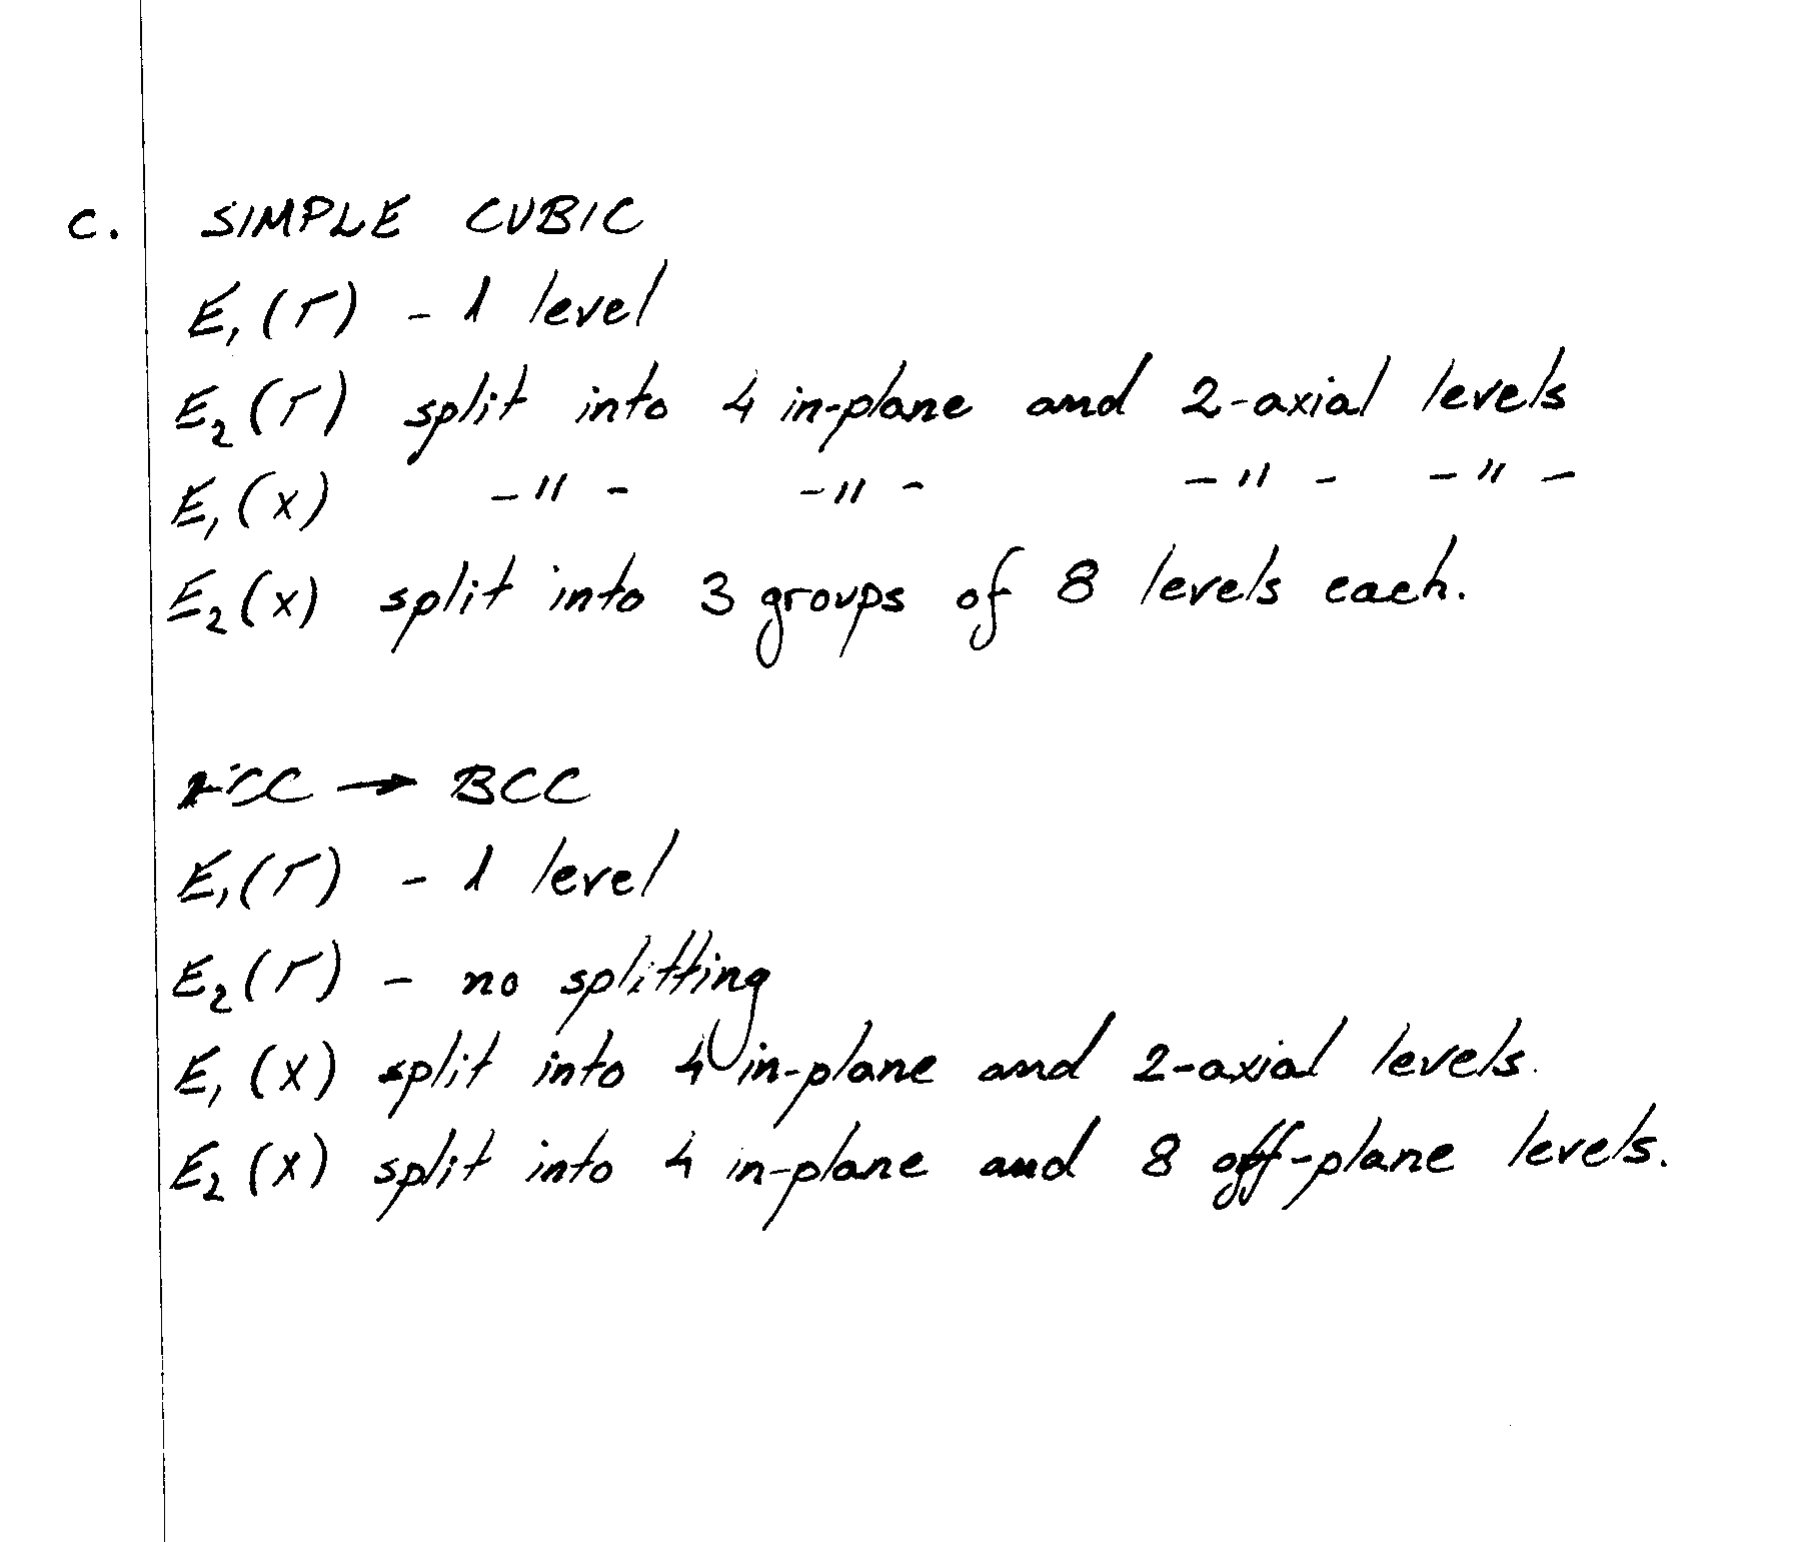 c. SIMPLE CUBIC
E₁(Γ) - 1 level
E₂(Γ) split into 4 in-plane and 2-axial levels
E₁(X) -"- -"- -"- -"-
E₂(X) split into 3 groups of 8 levels each.
→ BCC
E₁(Γ) - 1 level
E₂(Γ) - no splitting
E₁(X) split into 4 in-plane and 2-axial levels.
E₂(X) split into 4 in-plane and 8 off-plane levels.